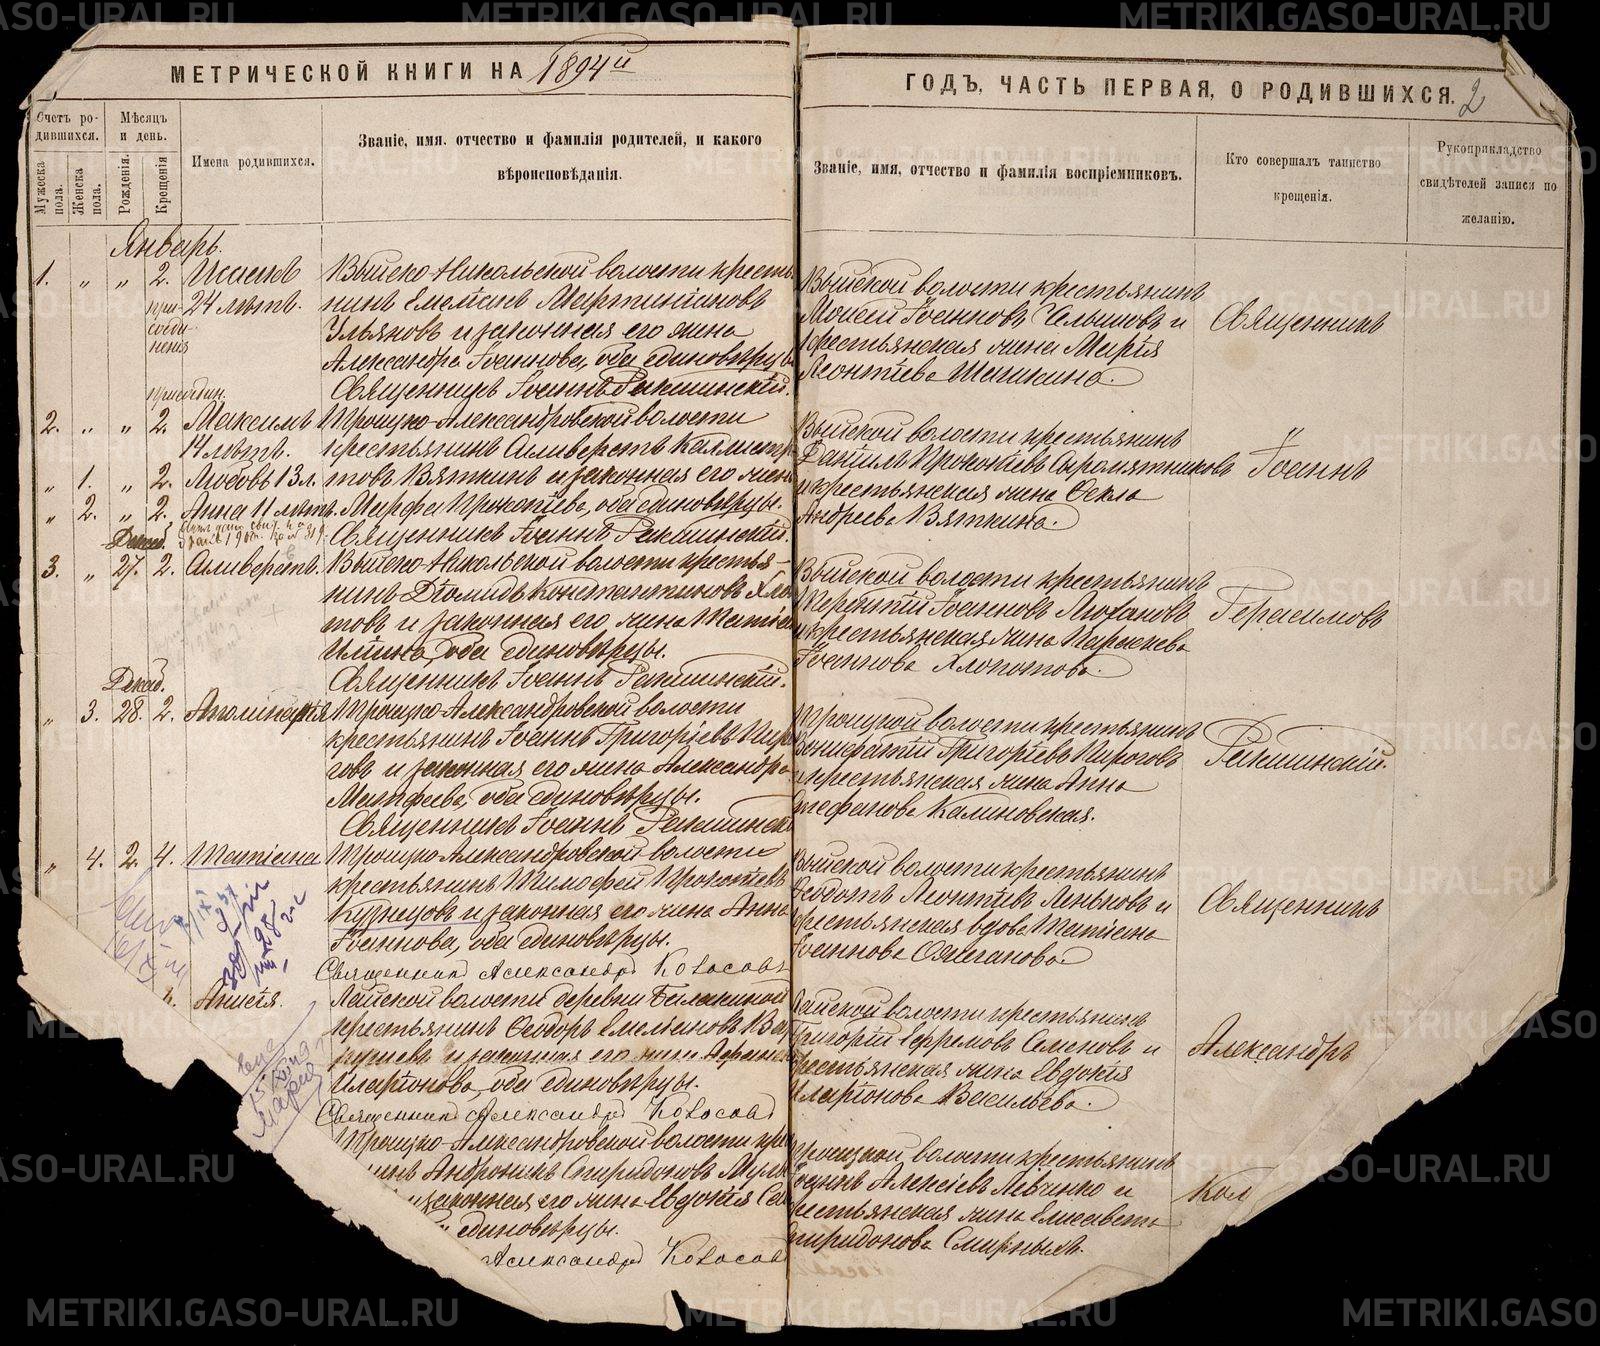 МЕТРИЧЕСКОЙ КНИГИ НА 1894й
ГОДЪ, ЧАСТЬ ПЕРВАЯ, О РОДИВШИХСЯ. 2
Счетъ ро-
дившихся.
Мужеска пола.
Женска пола.
Мѣсяцъ
и день.
Рожденія.
Крещенія
Имена родившихся.
Званіе, имя, отчество и фамилія родителей, и какого
вѣроисповѣданія.
Званіе, имя, отчество и фамилія воспріемниковъ.
Кто совершалъ таинство
крещенія.
Рукоприкладство
свидѣтелей записи по
желанію.
Январь.
1. „ „ 2. Исаакъ
при-
соеди-
ненія
24 лѣтъ.
Выйско-Никольской волости кресть
нинъ Емельянъ Мартиніановъ
Ульяновъ и законная его жена
Александра Іоаннова, оба единовѣрцы
Священникъ Іоаннъ Ракшинскій.
Выйской волости крестьянинъ
Моисей Іоанновъ Челышовъ и
крестьянская жена Марія
Леонтіева Шишкина.
Священникъ
присоедин.
2. „ „ 2. Максимъ
14 лѣтъ.
„ 1. „ 2. Любовь 13 л.
„ 2. „ 2. Анна 11 лѣтъ.
Троицко-Александровской волости
крестьянинъ Сильверстъ Каллистр
товъ Вяткинъ и законная его жена
Марфа Прокопіева, оба единовѣрцы.
Священникъ Іоаннъ Ракшинскій.
Выйской волости крестьянинъ
Даніилъ Прокопіевъ Сыромятниковъ
и крестьянская жена Ѳекла
Андреева Вяткина.
Іоаннъ
Декаб.
3. „ 27. 2. Сильверстъ.
Выйско-Никольской волости крестья-
нинъ Діомидъ Константиновъ Хло
товъ и законная его жена Татіа
Ильина, оба единовѣрцы.
Священникъ Іоаннъ Ракшинскій.
Выйской волости крестьянинъ
Терентій Іоанновъ Лохановъ
и крестьянская жена Параскева
Іоаннова Хлопотова.
Герасимовъ
Декаб.
„ 3. 28. 2. Аполинарія
Троицко-Александровской волости
крестьянинъ Іоаннъ Григоріевъ Пиро
говъ и законная его жена Александра
Матфеева, оба единовѣрцы.
Священникъ Іоаннъ Ракшинск
Троицкой волости крестьянинъ
Вонифатій Григоріевъ Пироговъ
и крестьянская жена Анна
Стефанова Калиновская.
Ракшинскій.
„ 4. 2. 4. Татіана
Троицко Александровской волости
крестьянинъ Тимофей Прокопіевъ
Кузнецовъ и законная его жена Анна
Іоаннова, оба единовѣрцы.
Священникъ Александръ Колосовъ
Выйской волости крестьянинъ
Ѳеодотъ Леонтіевъ Леньковъ и
крестьянская вдова Татіана
Іоаннова Ожеганова.
Священникъ
Анисія.
Лайской волости деревни Балакиной
крестьянинъ Ѳеодоръ Емельяновъ Ва
рушевъ и законная его жена
Иларіонова, оба единовѣрцы.
Священникъ Александръ Колосовъ
Лайской волости крестьянинъ
Григорій Ефремовъ Семеновъ и
крестьянская жена Евдокія
Иларіонова Васильева.
Александръ
Троицко-Александровской волости кре
нинъ Андроникъ Спиридоновъ Мул
законная его жена Евдокія Са
единовѣрцы.
Александръ Колосов
Троицкой волости крестьянинъ
Іоаннъ Алексіевъ Левченко и
крестьянская жена Елисавета
Спиридонова Смирныхъ.
Кол
METRIKI.GASO-URAL.RU